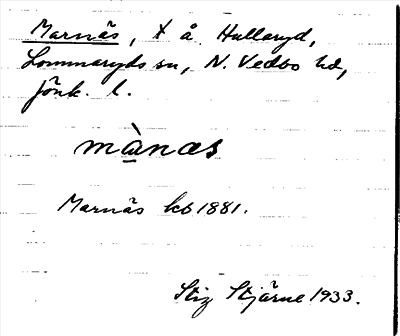 Marnäs, x å Hullaryd,
Lommaryds sn, N. Vedbo hd,
Jönk. l.
mànas
Marnäs kb 1881.
Stig Stjärne 1933.